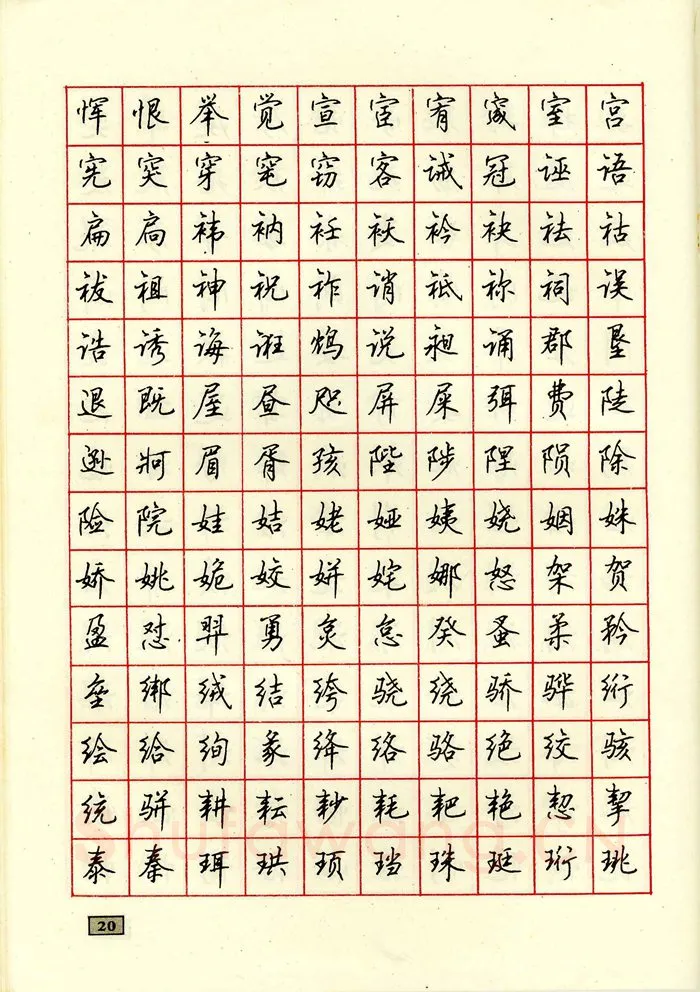 恽恨举觉宣宦宥宬室宫
宪突穿窀窃客诫冠诬语
扁扃袆衲衽袄衿袂祛祜
祓祖神祝祚诮祗祢祠误
诰诱诲诳鸩说昶诵郡垦
退既屋昼咫屏屎弭费陡
逊牁眉胥孩陛陟陧陨除
险院娃姞姥娅姨娆姻姝
娇姚姽姣姘姹娜怒架贺
盈怼羿勇炱怠癸蚤柔矜
垒绑绒结绔骁绕骄骅绗
绘给绚彖绛络骆绝绞骇
统骈耕耘耖耗耙艳恝挈
泰秦珥珙顼珰珠珽珩珧
20